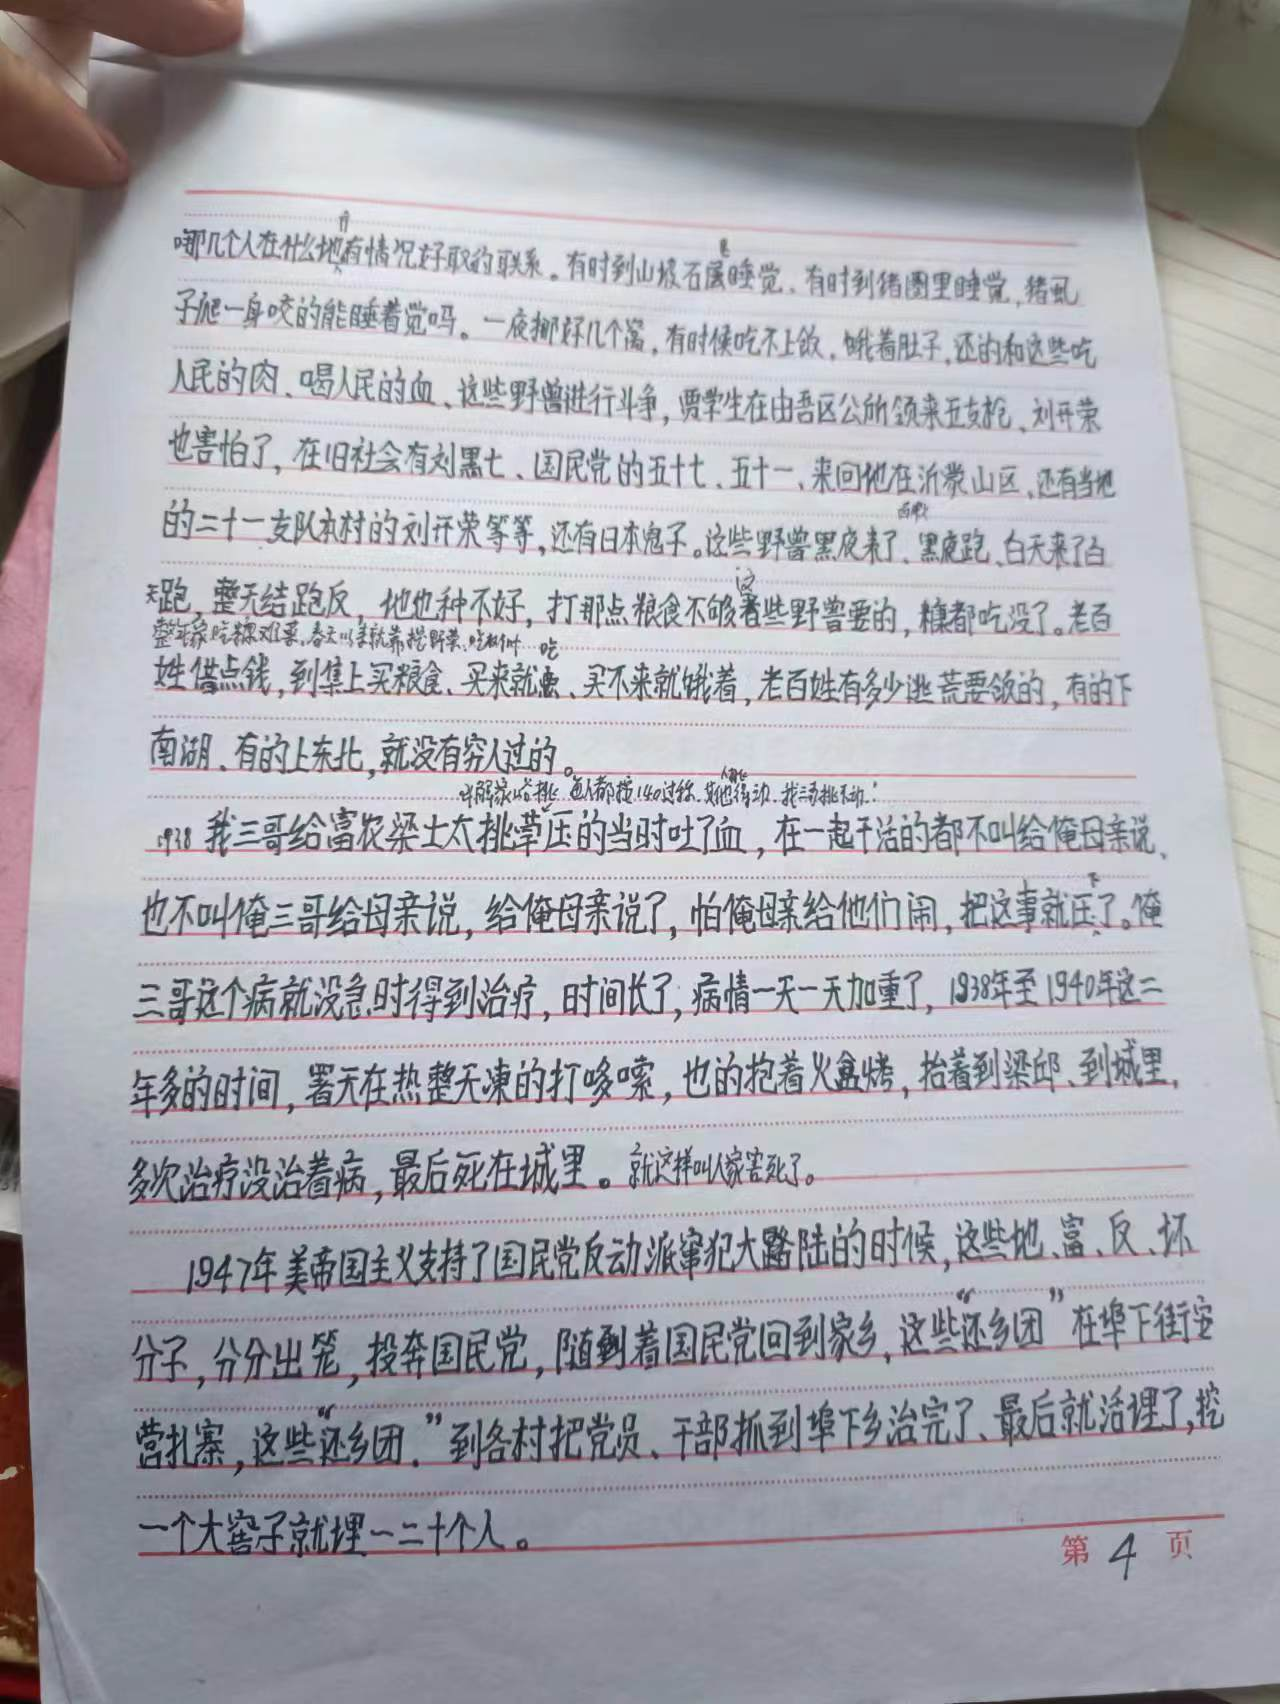 方
哪几个人在什么地有情况好取的联系。有时到山坡石屋睡觉、有时到猪圈里睡觉,猪虱
子爬一身咬的能睡着觉吗。一夜挪好几个窝,有时候吃不上饭,饿着肚子,还的和这些吃
人民的肉、喝人民的血、这些野兽进行斗争,贾学生在由吾区公所领来五支枪、刘开荣
也害怕了,在旧社会有刘黑七、国民党的五十七、五十一、来回他在沂蒙山区、还有当地
的二十一支队和村的刘开荣等等,还有日本鬼子。这些野兽黑夜来了、黑夜跑、白天来了白
这
天跑,整天结跑反,地也种不好,打那点粮食不够着些野兽要的,糠都吃没了。老百
春天以来就靠挖野菜、吃
姓借点钱,到集上买粮食、买来就、买不来就饿着,老百姓有多少逃荒要饭的,有的下
南湖、有的上东北,就没有穷人过的。
1938 我三哥给富农梁士太挑草压的当时吐了血,在一起干活的都不叫给俺母亲说、
下
也不叫俺三哥给母亲说,给俺母亲说了,怕俺母亲给他们闹,把这事就压了。俺
三哥这个病就没急时得到治疗,时间长了,病情一天一天加重了,1938年至1940年这二
年多的时间,署天在热整天凍的打哆嗦,也的抱着火盆烤,抬着到梁邱、到城里,
多次治疗没治着病,最后死在城里。就这样叫人家害死了。
1947年美帝国主义支持了国民党反动派窜犯大路陆的时候,这些地、富、反、坏
分子,分分出笼,投奔国民党,随到着国民党回到家乡,这些“还乡团”在埠下街安
营扎寨,这些“还乡团.”到各村把党员、干部抓到埠下乡治完了、最后就活埋了,挖
一个大窖子就埋一二十个人。
第 4 页